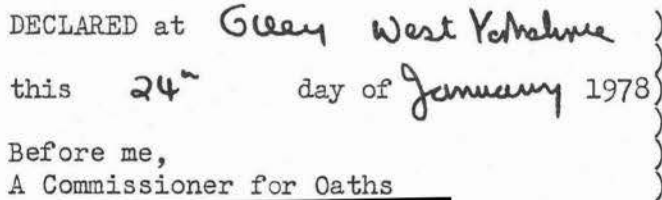 DECLARED at Otley West Yorkshire )
this 24th day of January 1978 )
Before me,
A Commissioner for Oaths